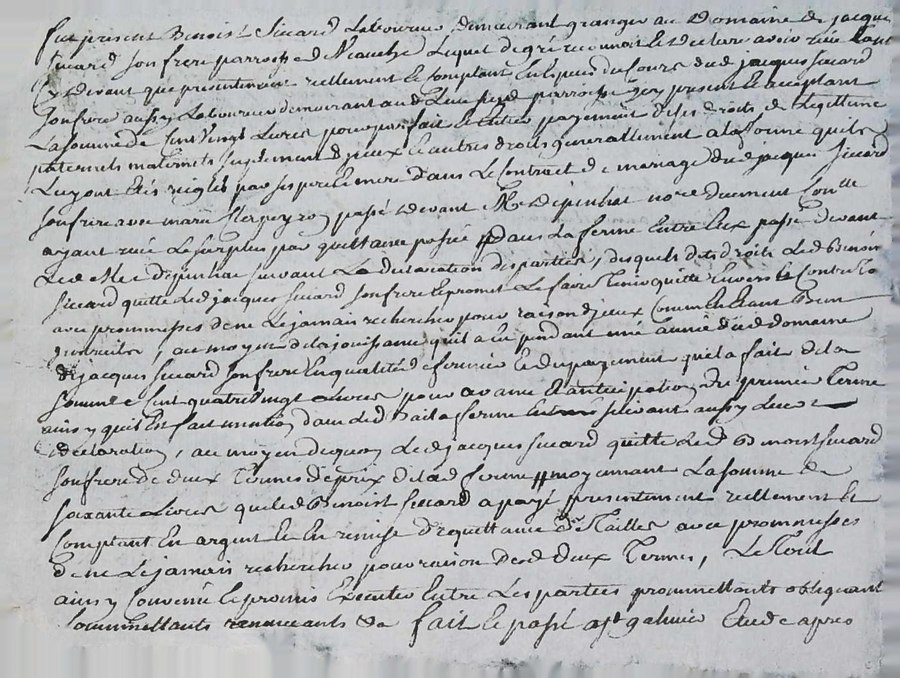 fut present Benoist Sicard Laboureur demeurant granger au Domaine de jacques
Sicard son frere parroisse d Lequel de gré reconnoit et declare avoir reçu tant
Cy devant que presentement reellement et comptant en especes du Cours dud jacques Sicard
son frere aussy Laboureur demeurant aud parroisse icy present et acceptant
La somme de Cent Vingt Livres pour parfait et entier payement de ses droits de Legitime
paternels maternels suplement d'jceux et autres droits generallement a la forme qu'ils
Luy ont étés reiglés par ses pere et mere dans Le Contract de mariage dud jacques Sicard
son frere avec marie passé devant Me Depinhac no.re duement
ayant reçu Le surplus par quittance passée dans La ferme entre Eux passé devant
Led Me Depinhac suivant La declaration des parties, desquels dits droits Led Benoist
Sicard quitte Led jacques Sicard son frere et promet Le faire tenir quitte Envers et Contre to
avec promesses de ne Le jamais rechercher pour raison d'jceux Comm
, au moyen de la jouissance qu'il a eu pendant une année dud domaine
de jacques Sicard son frere En qualité de fermier et du payement qu'il a fait de la
somme de Cent quatre vingt Livres pour avance et anticipation du premier Terme
ainsy qu'il Est fait mention dans led Bail a ferme suivant aussy Leur
declaration, au moyen dequoy Led jacques Sicard quitte Led Benoist Sicard
son frere de deux Termes de prix de lad ferme moyennant La somme de
soixante Livres que led Benoist Sicard a payé presentement reellement et
Comptant En argent et En remise d'quittance de Tailles avec promesses
de ne Le jamais rechercher pour raison desd deux Termes, Le Tout
ainsy Convenu et promis Executer Entre Les parties promettants obligeant
soummettants renonceants &a fait et passé a st galmier Etude apres